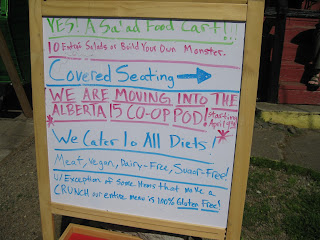 YES! A Salad Food Cart!!!
10 Entrée Salads or Build Your Own Monster.
Covered Seating
WE ARE MOVING INTO THE
ALBERTA 15 CO-OP POD! Starting
April
We Cater to All Diets!
Meat, Vegan, Dairy-Free, Sugar-Free!
w/ Exception of Some Items that make a
CRUNCH our entire menu is 100% Gluten Free!